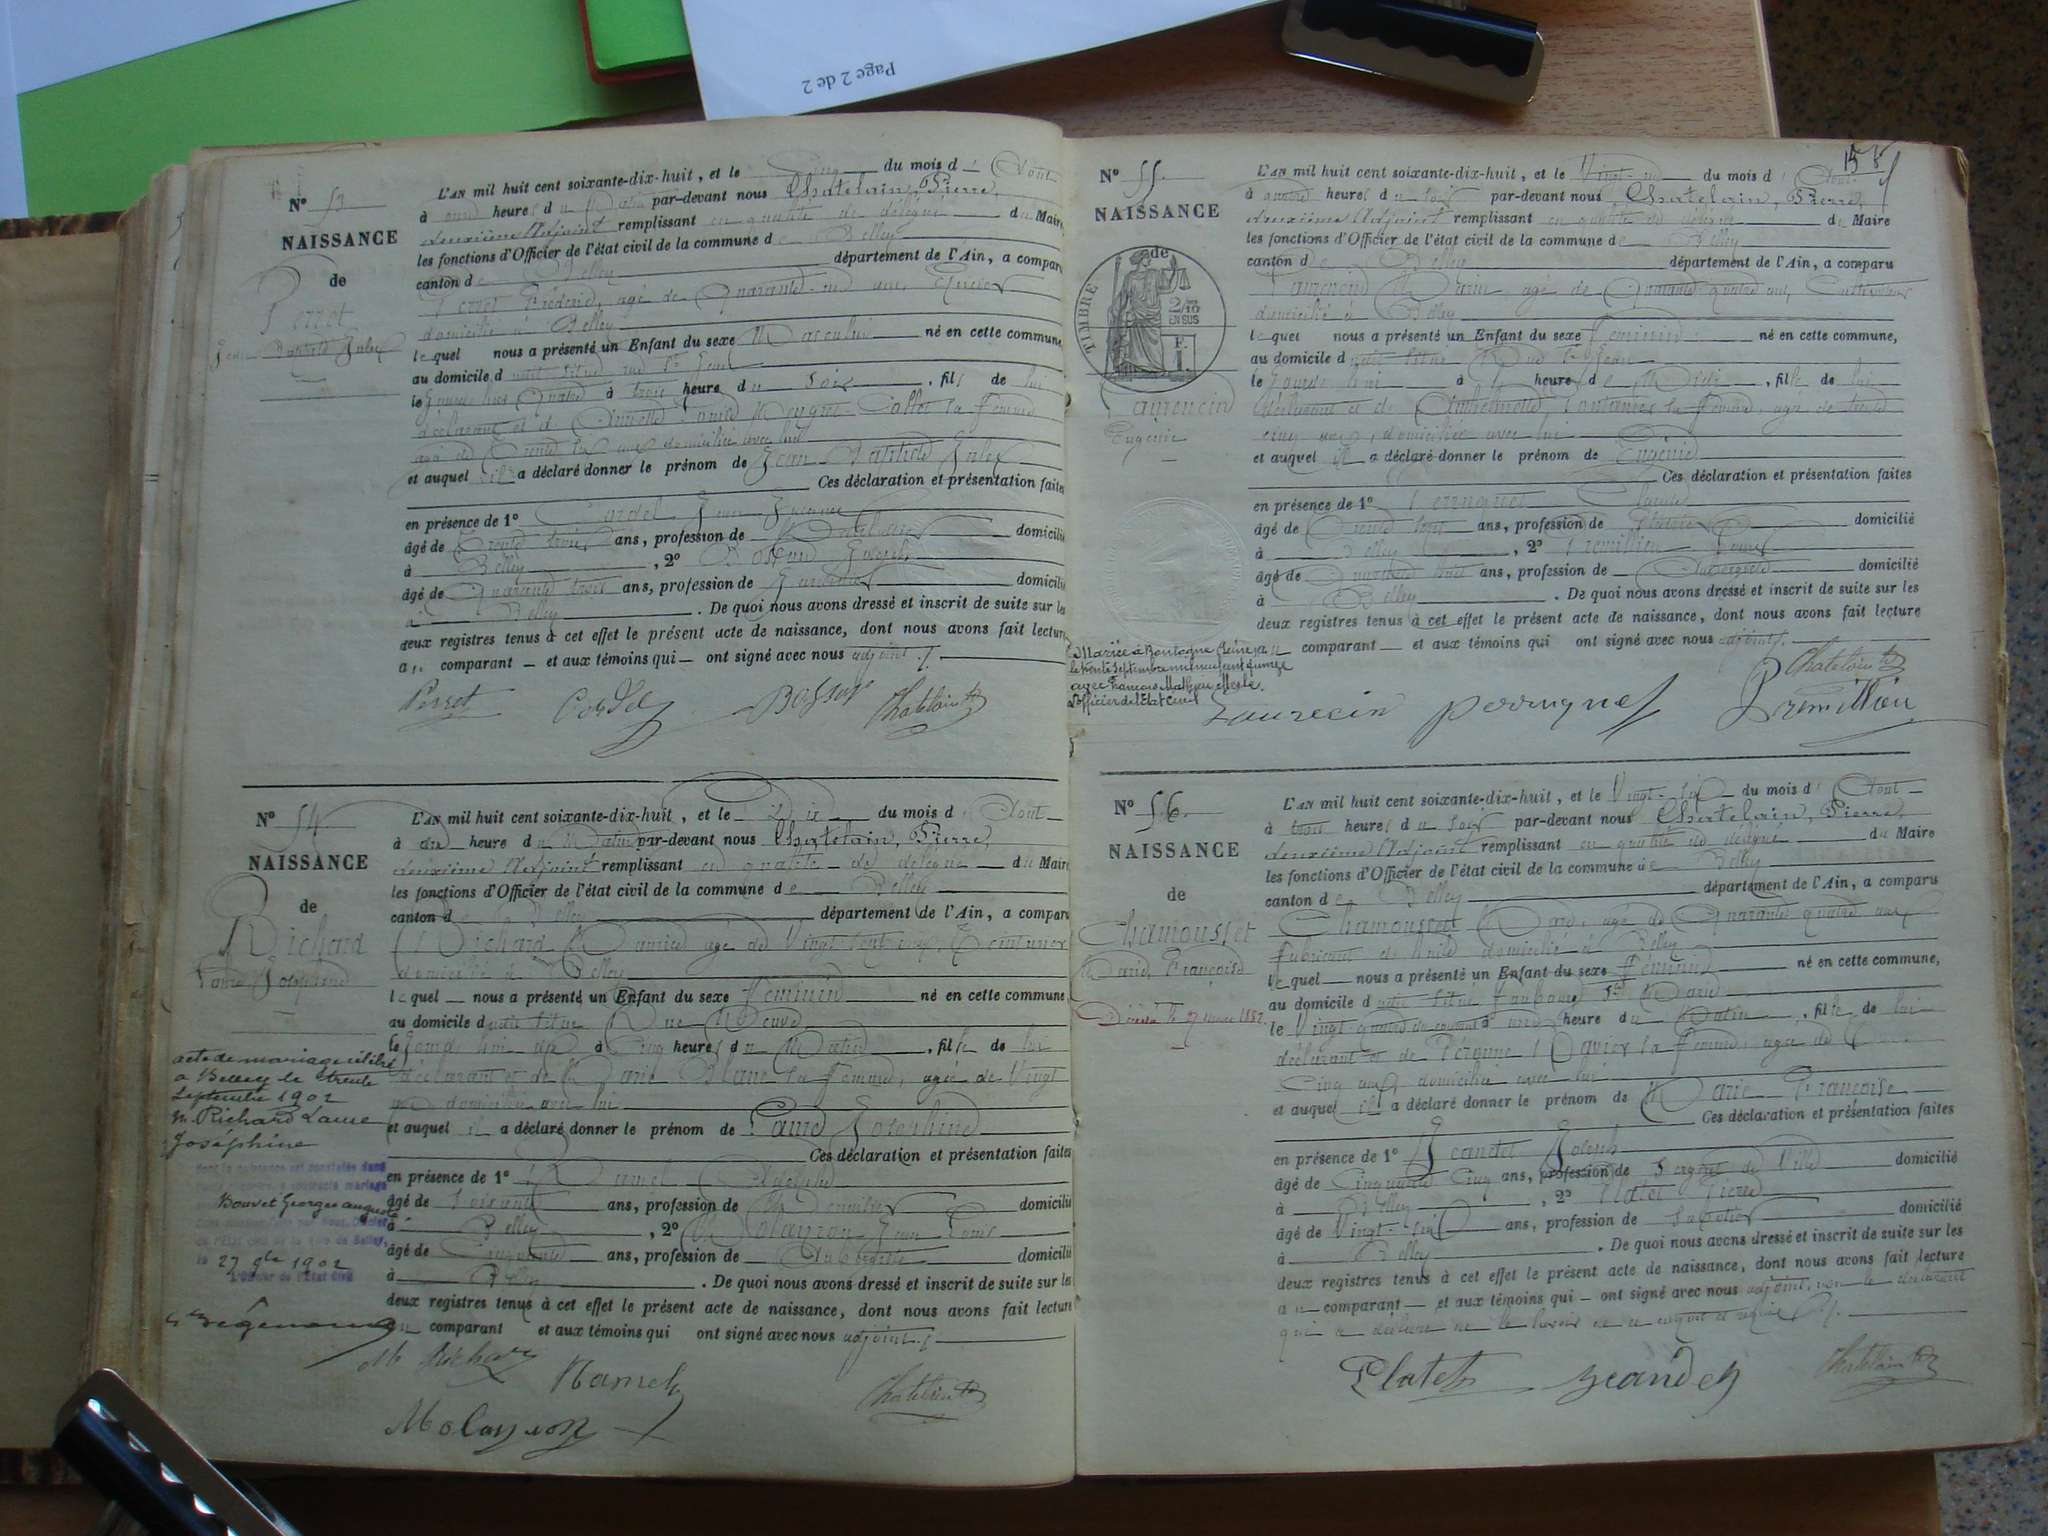 Page 2 de 2
N° 53
NAISSANCE
de
Perret
Jean Baptiste Jules
L'AN mil huit cent soixante-dix-huit, et le Cinq du mois d' Août
à onze heures du Matin par-devant nous Chatelain, Pierre,
deuxième Adjoint remplissant en qualité de délégué du Maire
les fonctions d'Officier de l'état civil de la commune de Belley
canton de Belley département de l'Ain, a comparu
Perret Frédéric, agé de Quarante un ans,
domicilié à Belley
lequel nous a présenté un Enfant du sexe Masculin né en cette commune,
au domicile d situé rue St Jean
le Quatre à trois heure du Soir, fils de lui
déclarant et d la femme
agé de Trente ans domiciliée avec lui
et auquel il a déclaré donner le prénom de Jean Baptiste Jules
Ces déclaration et présentation faites
en présence de 1° Cordel Jean
âgé de Trente trois ans, profession de domicilié
à Belley, 2° Joseph
âgé de Quarante trois ans, profession de domicilié
à Belley. De quoi nous avons dressé et inscrit de suite sur les
deux registres tenus à cet effet le présent acte de naissance, dont nous avons fait lecture
au comparant et aux témoins qui ont signé avec nous adjoint.
Perret Chatelain
N° 54
NAISSANCE
de
Richard
Laure Joséphine
L'AN mil huit cent soixante-dix-huit, et le Dix du mois d' Août
à dix heure du Matin par-devant nous Chatelain, Pierre,
deuxième Adjoint remplissant en qualité de délégué du Maire
les fonctions d'Officier de l'état civil de la commune de Belley
canton de Belley département de l'Ain, a comparu
Richard agé de Vingt sept ans, Teinturier
domicilié à Belley
lequel nous a présenté un Enfant du sexe Féminin né en cette commune,
au domicile d situé Rue Neuve
le à Cinq heures du Matin, fille de lui
déclarant et de Marie Blanc sa femme, agée de Vingt
domiciliée avec lui
et auquel il a déclaré donner le prénom de Laure Joséphine
Ces déclaration et présentation faites
en présence de 1° Ramel
âgé de Soixante ans, profession de Menuisier domicilié
à Belley, 2° Molayron Jean Louis
âgé de Cinquante ans, profession de Aubergiste domicilié
à Belley. De quoi nous avons dressé et inscrit de suite sur les
deux registres tenus à cet effet le présent acte de naissance, dont nous avons fait lecture
au comparant et aux témoins qui ont signé avec nous adjoint.
acte de mariage célébré
à Belley le trente
Septembre 1902
M. Richard Laure
Joséphine
dont la naissance est constatée dans
a contracté mariage
Bouvet Georges auguste
de l'Etat civil de la ville de Belley,
le 27 9bre 1902
L'Officier de l'Etat Civil
Richard Ramel Chatelain
Molayron
N° 55
NAISSANCE
de
TIMBRE
2/10
EN SUS
1 F.
Laurencin
Eugénie
L'AN mil huit cent soixante-dix-huit, et le Vingt-un du mois d' Août
à quatre heures du soir par-devant nous Chatelain, Pierre,
deuxième Adjoint remplissant en qualité de délégué du Maire
les fonctions d'Officier de l'état civil de la commune de Belley
canton de Belley département de l'Ain, a comparu
Laurencin Marin agé de Quarante quatre ans, Cultivateur
domicilié à Belley
lequel nous a présenté un Enfant du sexe Féminin né en cette commune,
au domicile d situé Rue St Jean
le à heure de Midi, fille de lui
déclarant et de sa femme, agé de trente
cinq ans, domiciliée avec lui
et auquel il a déclaré donner le prénom de Eugénie
Ces déclaration et présentation faites
en présence de 1° Perruquet Claude
âgé de Trente trois ans, profession de domicilié
à Belley, 2° Premillieu Louis
âgé de Quarante trois ans, profession de Aubergiste domicilié
à Belley. De quoi nous avons dressé et inscrit de suite sur les
deux registres tenus à cet effet le présent acte de naissance, dont nous avons fait lecture
au comparant et aux témoins qui ont signé avec nous adjoint.
Mariée à Boulogne (Seine)
le trente Septembre mil neuf cent quinze
avec François
L'officier de l'état civil
Chatelain
Laurecin perruquet Premillieu
N° 56
NAISSANCE
de
Chamousset
Marie Françoise
Décédée le 27 1882
L'AN mil huit cent soixante-dix-huit, et le Vingt-six du mois d' Août
à trois heures du soir par-devant nous Chatelain, Pierre,
deuxième Adjoint remplissant en qualité de délégué du Maire
les fonctions d'Officier de l'état civil de la commune de Belley
canton de Belley département de l'Ain, a comparu
Chamousset Marc, agé de Quarante quatre ans
Fabricant domicilié à Belley
lequel nous a présenté un Enfant du sexe Féminin né en cette commune,
au domicile d situé faubourg St
le Vingt-quatre du courant à onze heure du Matin, fille de lui
déclarant et de Péronne sa femme, agée de
cinq ans, domiciliée avec lui
et auquel il a déclaré donner le prénom de Marie Françoise
Ces déclaration et présentation faites
en présence de 1° Jeandet Joseph
âgé de Cinquante Cinq ans, profession de Sergent de Ville domicilié
à Belley, 2° Platet Pierre
âgé de Vingt-six ans, profession de Sabotier domicilié
à Belley. De quoi nous avons dressé et inscrit de suite sur les
deux registres tenus à cet effet le présent acte de naissance, dont nous avons fait lecture
au comparant et aux témoins qui ont signé avec nous adjoint, non le déclarant
qui a déclaré ne le savoir de ce enquis et requis.
Platet Jeandet Chatelain